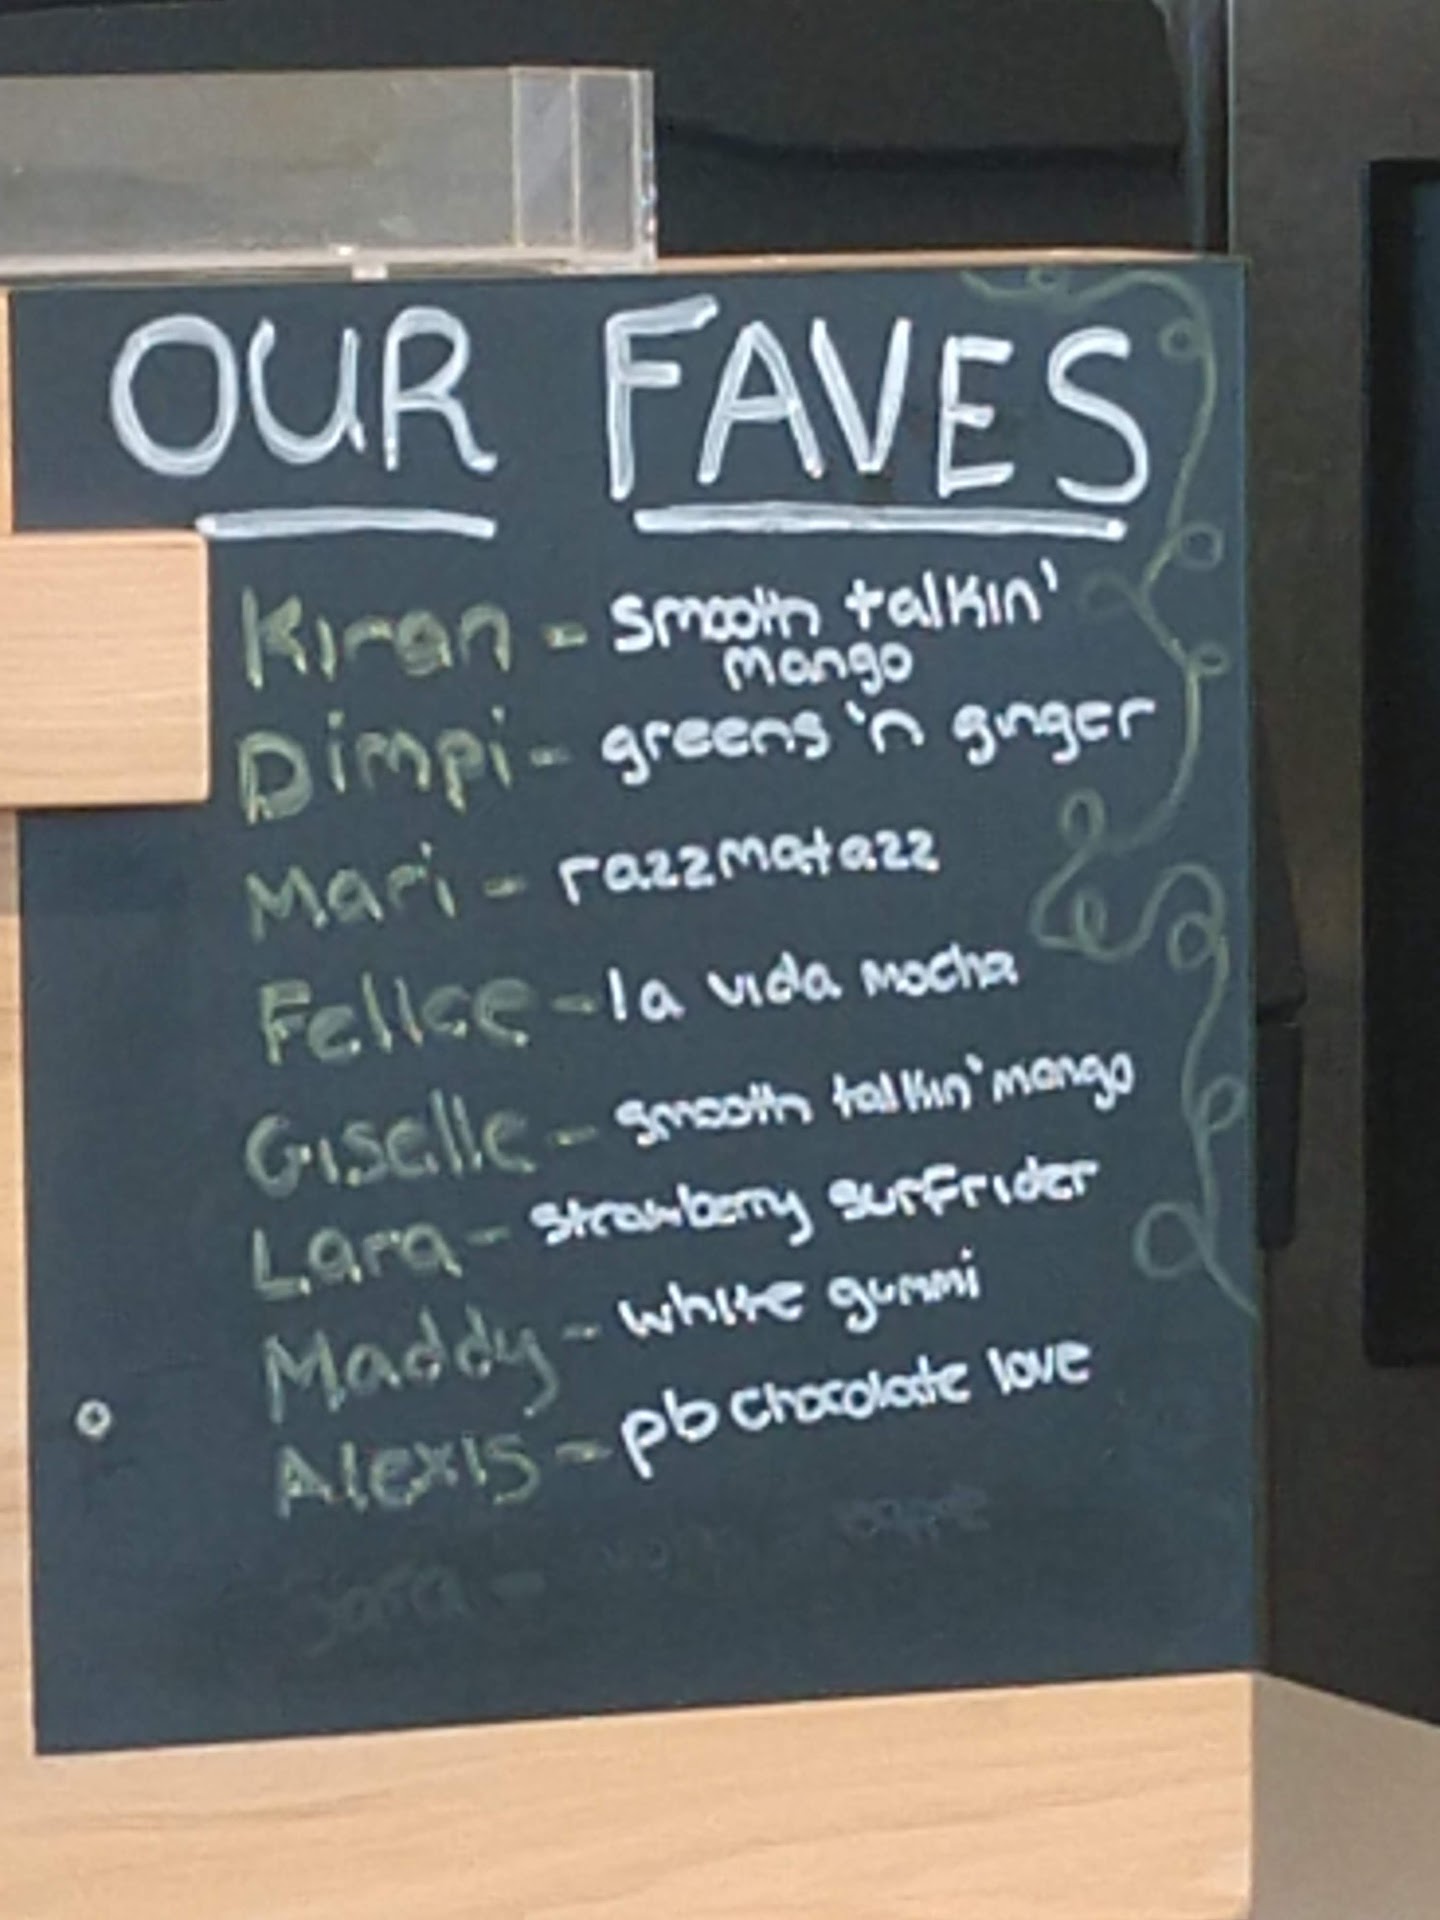 OUR FAVES
Kiran - smooth talkin'
mango
Dimpi - greens 'n ginger
Mari - razzmatazz
Felice - la vida mocha
Giselle - smooth talkin' mango
Lara - strawberry surfrider
Maddy - white gummi
Alexis - pb chocolate love
Sara -